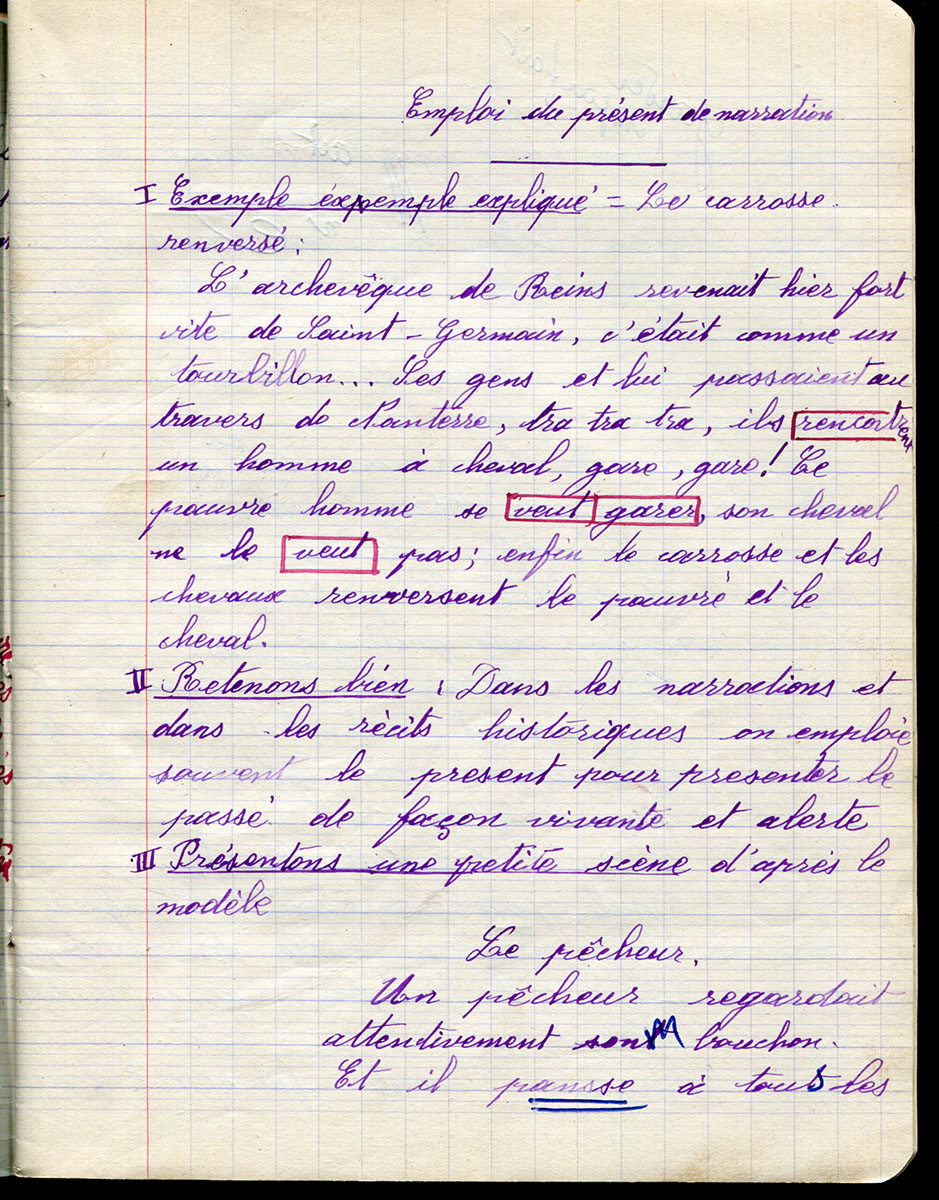 Emploi du présent de narration
I Exemple éxpemple expliqué = Le carrosse.
renversé :
L'archevêque de Reins revenait hier fort
vite de Saint-Germain, c'était comme un
tourbillon... Ses gens et lui passaient au
travers de Nanterre, tra tra tra, ils rencontrent
un homme à cheval, gare, gare! Ce
pauvre homme se veut garer, son cheval
ne le veut pas; enfin le carrosse et les
chevaux renversent le pauvre et le
cheval.
II Retenons bien : Dans les narrations et
dans les récits historiques on emploie
souvent le present pour presenter le
passé de façon vivante et alerte
III Présentons une petite scène d'après le
modèle
Le pêcheur.
Un pêcheur regardait
attentivement son bouchon.
Et il pansse à tous les